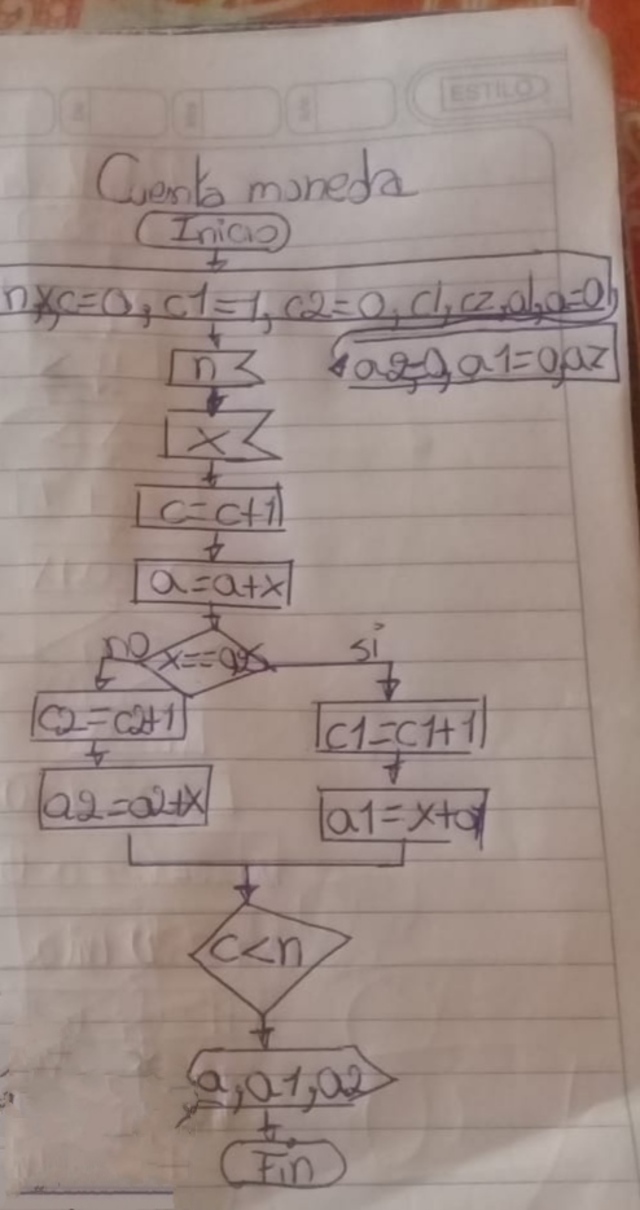 ESTILO
Cuenta moneda
Inicio
n,x,c=0, c1=1, c2=0, c1, c2, a1, a=0,
a2=0, a1=0, a2
n
x
c=c+1
a=a+x
no
si
c2=c2+1
c1=c1+1
a2=a2+x
a1=x+a1
c<n
a, a1, a2
Fin